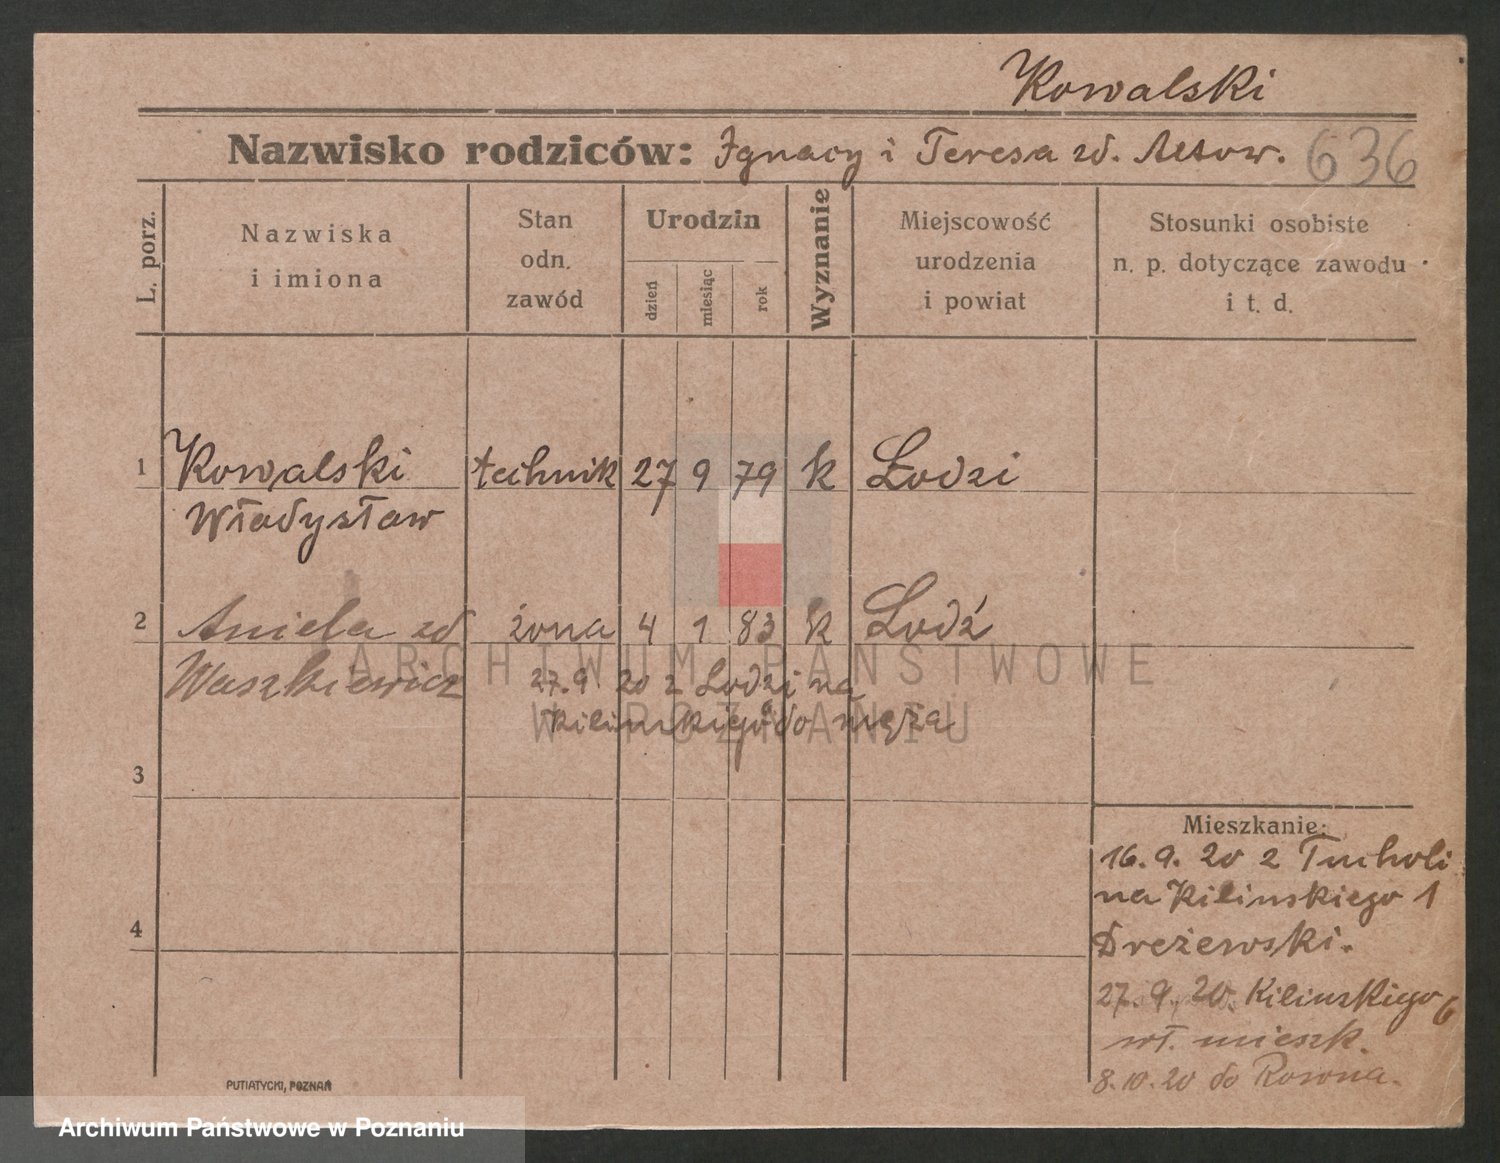 Kowalski
Nazwisko rodziców: Ignacy i Teresa zd.
636
L. porz.
Nazwiska
i imiona
Stan
odn.
zawód
Urodzin
dzień
miesiąc
rok
Wyznanie
Miejscowość
urodzenia
i powiat
Stosunki osobiste
n. p. dotyczące zawodu
i t. d.
1 Kowalski technik 27 9 79 k Łodzi
Władysław
2 Aniela zd żona 4 1 83 k Łodź
Waszkiewicz 27.9 20 z Łodzi na
Kilinskiego do męża
3
4
Mieszkanie:
16.9. 20 z Tucholi
na Kilinskiego 1
Dreżewski.
27.9. 20. Kilinskiego 6
wł. mieszk.
8.10.20 do Rowna.
PUTIATYCKI, POZNAŃ
ARCHIWUM PAŃSTWOWE
W POZNANIU
Archiwum Państwowe w Poznaniu